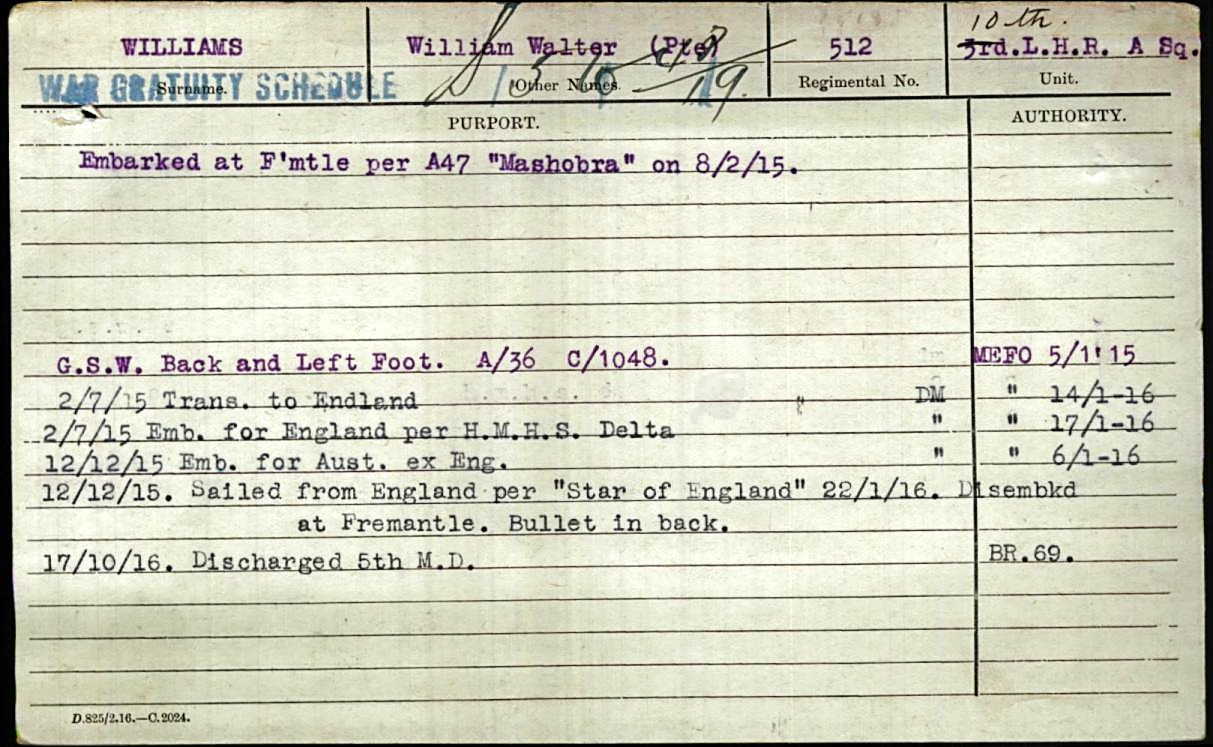 10th.
WILLIAMS William Walter (Pte) 512 3rd.L.H.R. A Sq.
WAR GRATUITY SCHEDULE
Surname. Other Names. Regimental No. Unit.
PURPORT. AUTHORITY.
Embarked at F'mtle per A47 "Mashobra" on 8/2/15.
G.S.W. Back and Left Foot. A/36 C/1048. MEFO 5/1'15
2/7/15 Trans. to Endland DM " 14/1-16
2/7/15 Emb. for England per H.M.H.S. Delta " " 17/1-16
12/12/15 Emb. for Aust. ex Eng. " " 6/1-16
12/12/15. Sailed from England per "Star of England" 22/1/16. Disembkd
at Fremantle. Bullet in back.
17/10/16. Discharged 5th M.D. BR.69.
D.825/2.16.—C.2024.